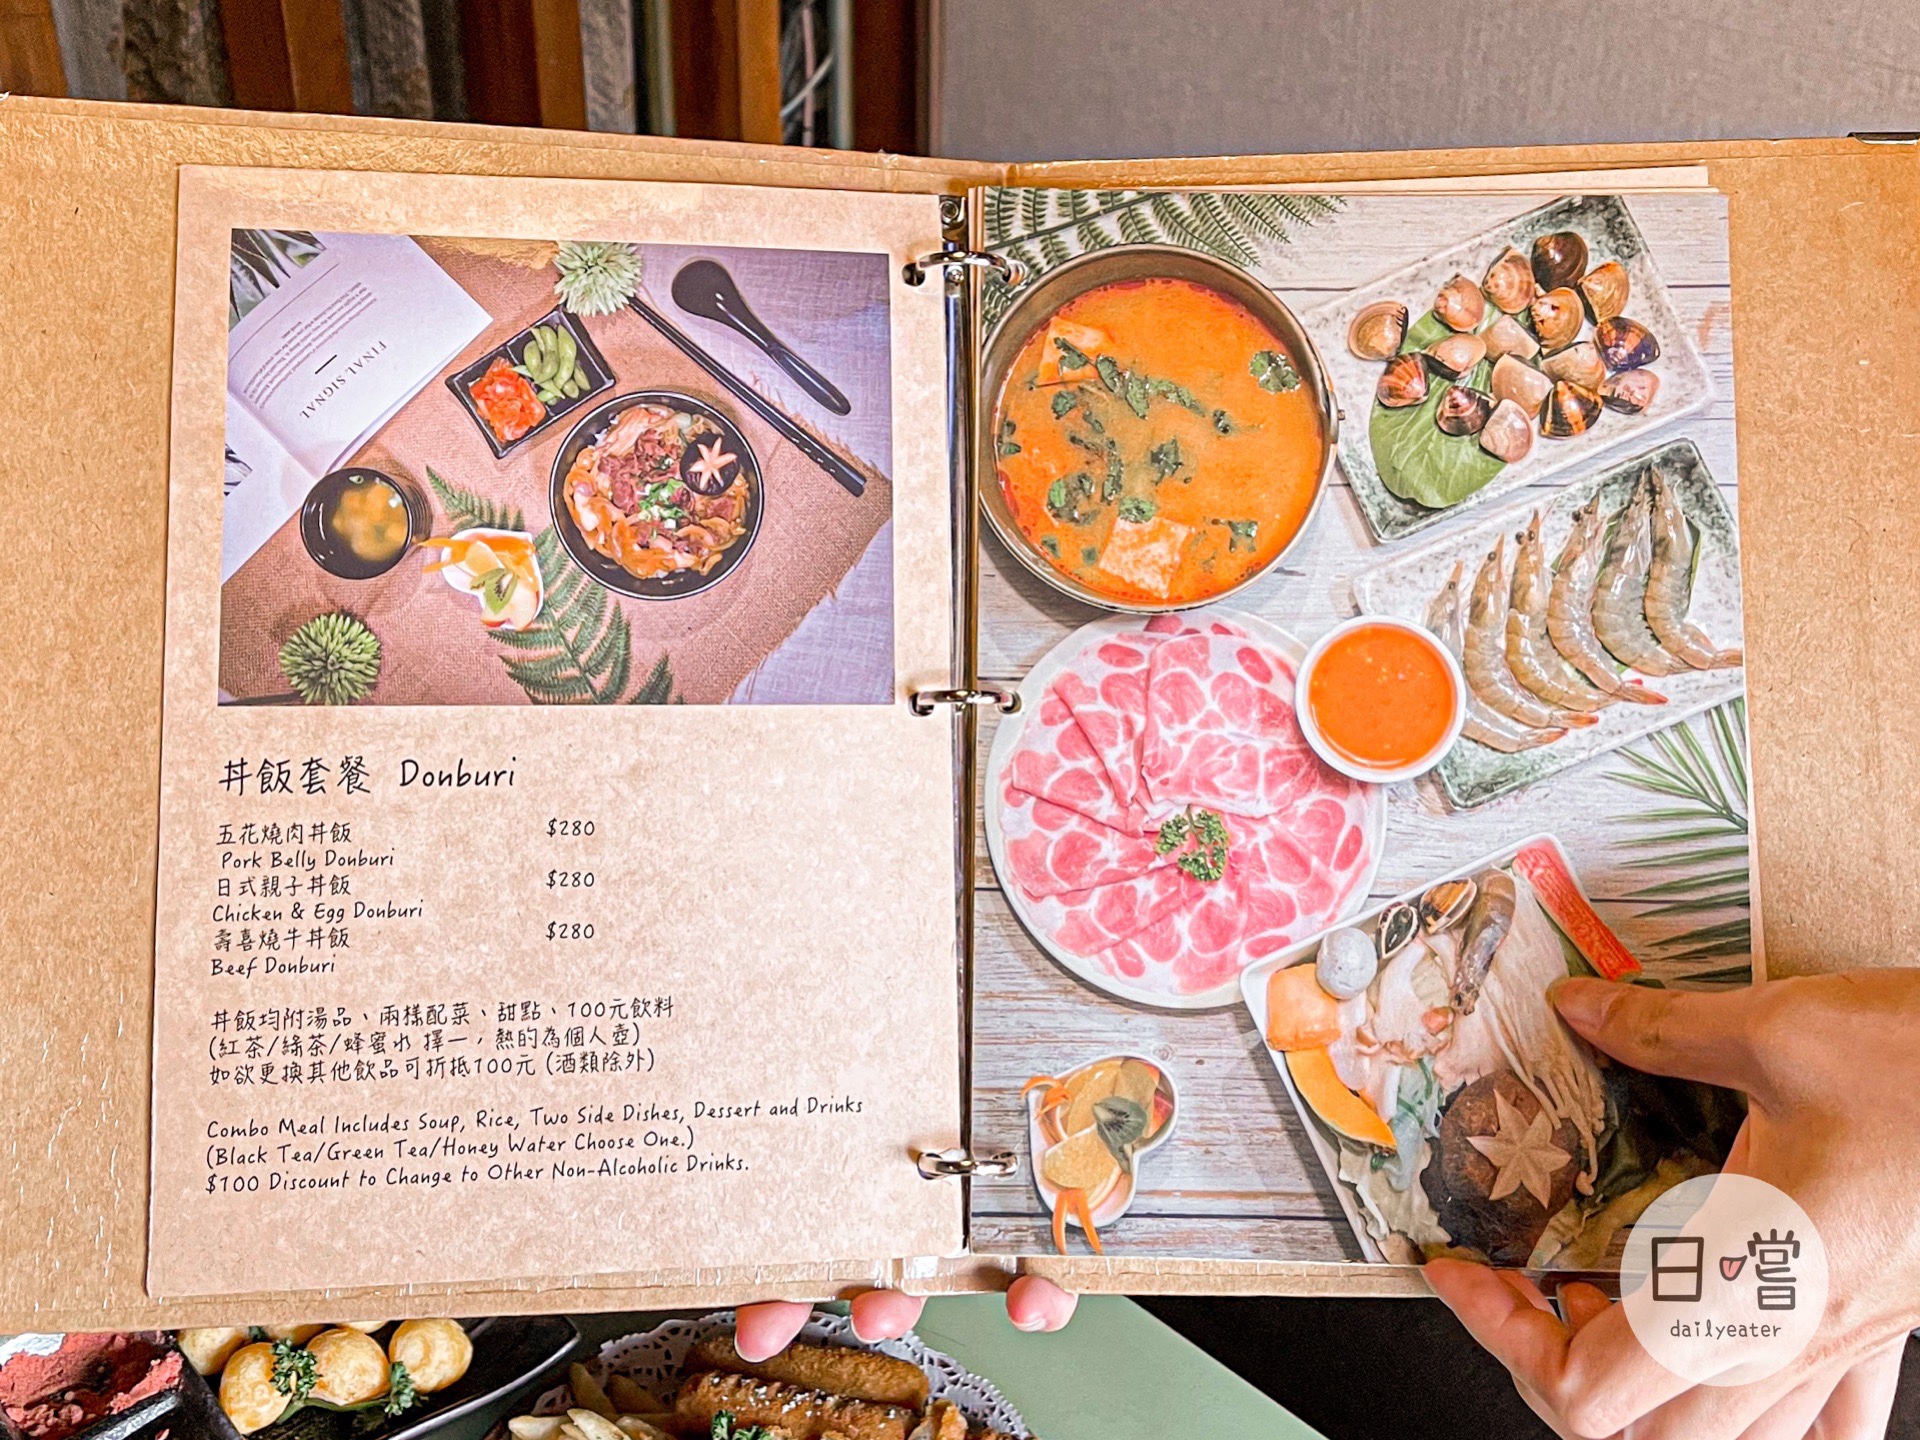 FINAL SIGNAL
丼飯套餐 Donburi
五花燒肉丼飯 $280
Pork Belly Donburi
日式親子丼飯 $280
Chicken & Egg Donburi
壽喜燒牛丼飯 $280
Beef Donburi
丼飯均附湯品、兩樣配菜、甜點、100元飲料
(紅茶/綠茶/蜂蜜水 擇一，熱的為個人壺)
如欲更換其他飲品可折抵100元 (酒類除外)
Combo Meal Includes Soup, Rice, Two Side Dishes, Dessert and Drinks
(Black Tea/Green Tea/Honey Water Choose One.)
$100 Discount to Change to Other Non-Alcoholic Drinks.
日嚐
dailyeater